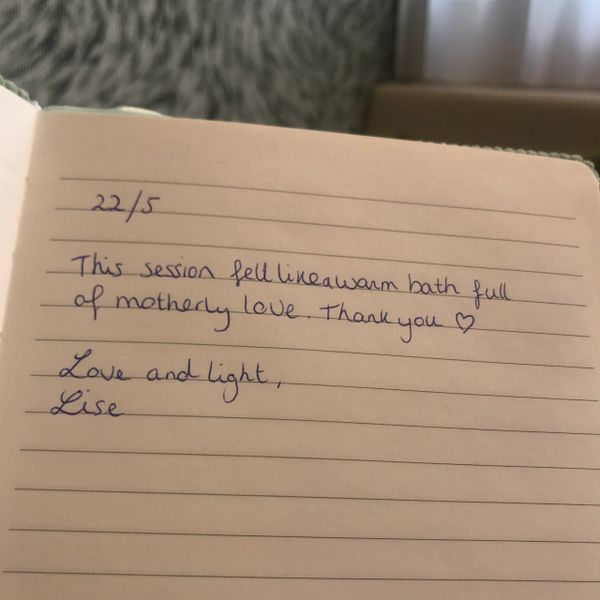 22/5
This session felt like a warm bath full
of motherly love. Thank you ♡
Love and light,
Lise